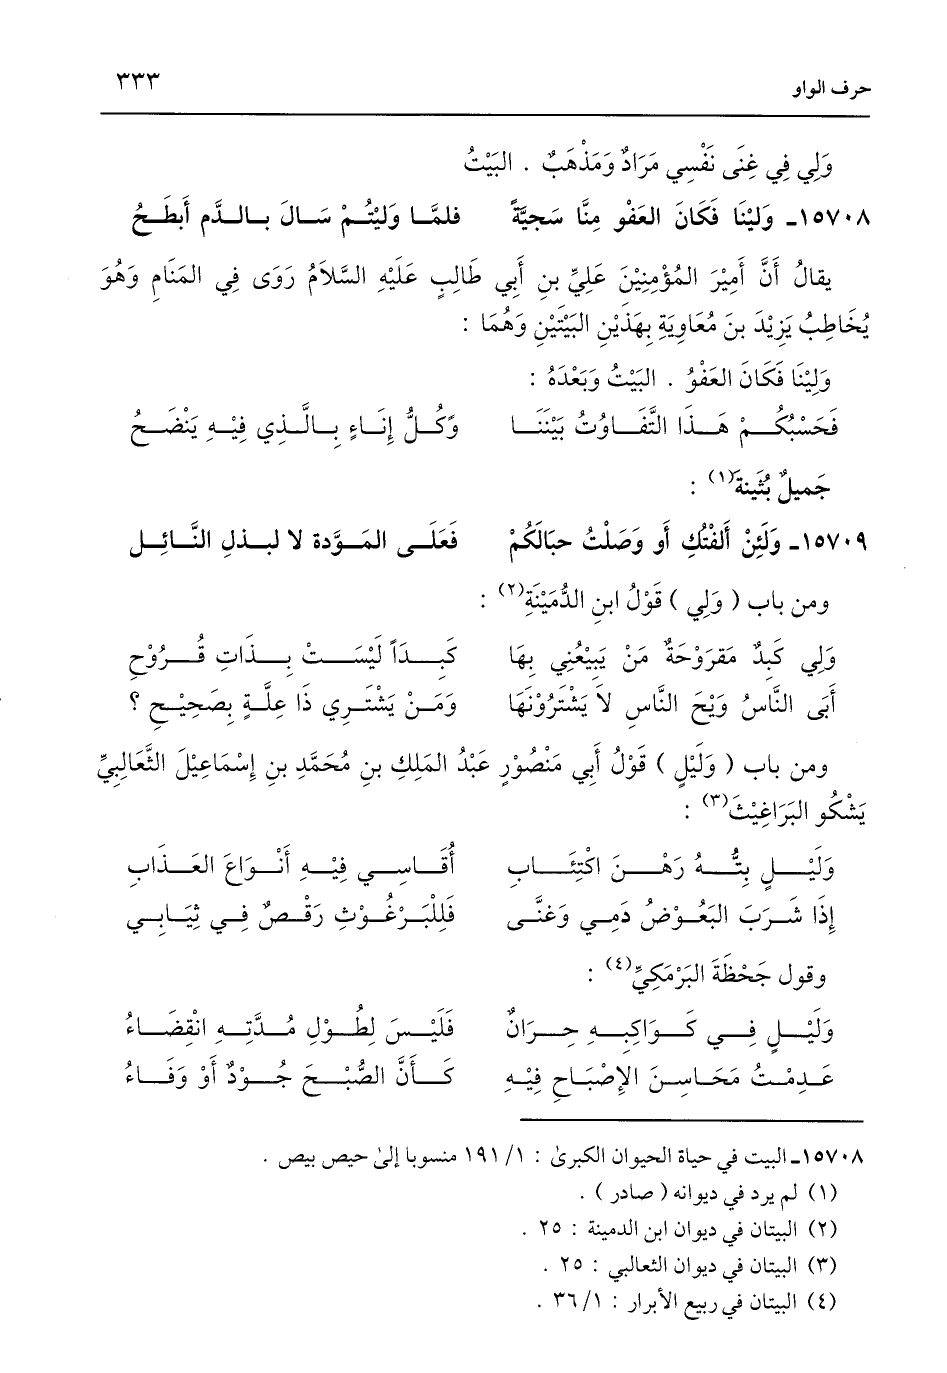 حرف الواو ٣٣٣
وَلِي فِي غِنَى نَفْسِي مَرَادٌ وَمَذْهَبٌ . البَيْتُ
١٥٧٠٨ـ وَلَيْنَا فَكَانَ العَفْو مِنَّا سَجيَّةً فلمَّا وَلِيْتُمْ سَالَ بالدَّم أَبطَحُ
يقالُ أَنَّ أَمِيْرَ المُؤْمِنِيْنَ عَلِيِّ بنِ أَبِي طَالِبٍ عَلَيْهِ السَّلاَمُ رَوَى فِي المَنَامِ وَهُوَ
يُخَاطِبُ يَزِيْدَ بنَ مُعَاوِيَةِ بِهَذَيْنِ البَيْتَيْنِ وَهُمَا :
وَلِيْنَا فَكَانَ العَفْوُ . البَيْتُ وَبَعْدَهُ :
فَحَسْبُكُمْ هَذَا التَّفَاوُتُ بَيْنَنَا وَكُلُّ إِنَاءٍ بِالَّذِي فِيْهِ يَنْضَحُ
جَميلٌ بُثَينةَ(١) :
١٥٧٠٩ـ وَلَئِنْ أَلفْتُكِ أَو وَصَلْتُ حبَالَكُمْ فَعَلَى المَوَّدة لا لبذلِ النَّائِلِ
ومن باب ( وَلِي ) قَوْلُ ابنِ الدُّمَيْنَةِ(٢) :
وَلِي كَبِدٌ مَقرَوْحَةٌ مَنْ يَبِيْعُنِي بِهَا كَبِداً لَيْسَتْ بِذَاتِ قُرُوْحِ
أَبَى النَّاسُ وَيْحَ النَّاسِ لاَ يَشْتَرُوْنَهَا وَمَنْ يَشْتَرِي ذَا عِلَّةٍ بِصَحِيْحِ ؟
ومن باب ( وَلَيْلٍ ) قَوْلُ أَبِي مَنْصُوْرٍ عَبْدُ المَلِكِ بنِ مُحَمَّدِ بنِ إِسْمَاعِيْلَ الثَّعَالِبِيِّ
يَشْكُو البَرَاغِيْثَ(٣) :
وَلَيْلٍ بِتُّهُ رَهْنَ اكْتِئَابِ أُقَاسِي فِيْهِ أَنْوَاعَ العَذَابِ
إِذَا شَرَبَ البَعُوْضُ دَمِي وَغَنَّى فَلِلْبَرْغُوْثِ رَقْصٌ فِي ثِيَابِي
وقول جَحْظَةَ البَرْمَكِيِّ(٤) :
وَلَيْلٍ فِي كَوَاكِبِهِ حِرَانٌ فَلَيْسَ لِطُوْلِ مُدَّتِهِ انْقِضَاءُ
عَدِمْتُ مَحَاسِنَ الإِصْبَاحِ فِيْهِ كَأَنَّ الصُّبْحَ جُوْدٌ أَوْ وَفَاءُ
١٥٧٠٨ـ البيت في حياة الحيوان الكبرىٰ : ١/ ١٩١ منسوبا إلىٰ حيص بيص .
(١) لم يرد في ديوانه ( صادر ) .
(٢) البيتان في ديوان ابن الدمينة : ٢٥ .
(٣) البيتان في ديوان الثعالبي : ٢٥ .
(٤) البيتان في ربيع الأبرار : ١/ ٣٦ .